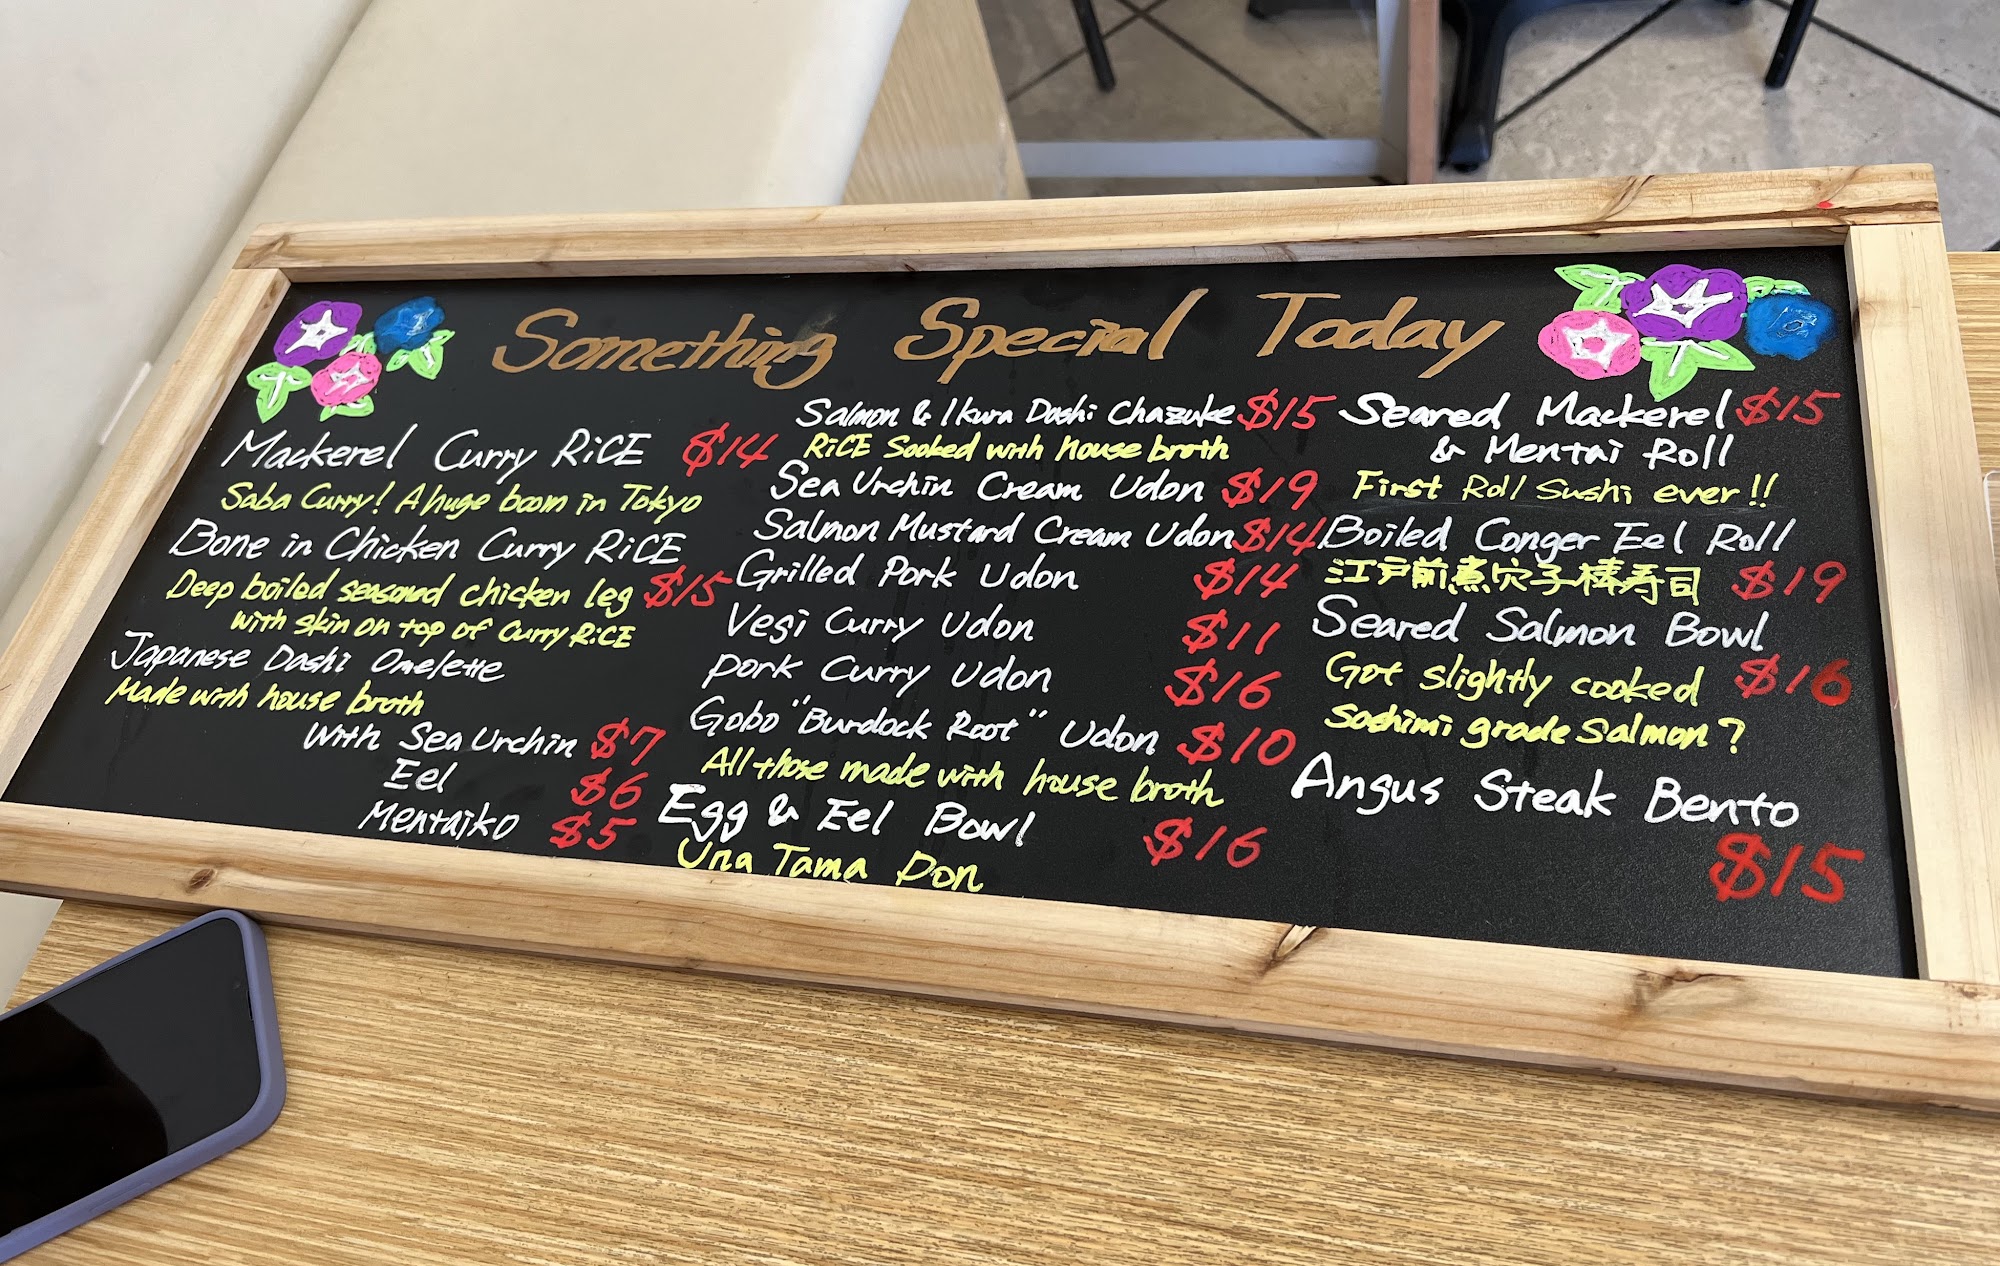 Something Special Today
Mackerel Curry RiCE $14
Saba Curry! A huge boom in Tokyo
Bone in Chicken Curry RiCE
Deep boiled seasoned chicken leg $15
with skin on top of Curry RiCE
Japanese Dashi Omelette
Made with house broth
with Sea Urchin $7
Eel $6
Mentaiko $5
Salmon & Ikura Dashi Chazuke $15
RiCE Sooked with house broth
Sea Urchin Cream Udon $19
Salmon Mustard Cream Udon $14
Grilled Pork Udon $14
Vegi Curry Udon $11
Pork Curry Udon $16
Gobo "Burdock Root" Udon $10
All those made with house broth
Egg & Eel Bowl $16
Una Tama Don
Seared Mackerel $15
& Mentai Roll
First Roll Sushi ever!!
Boiled Conger Eel Roll
江戸前煮穴子棒寿司 $19
Seared Salmon Bowl
Got slightly cooked $16
Sashimi grade Salmon?
Angus Steak Bento
$15